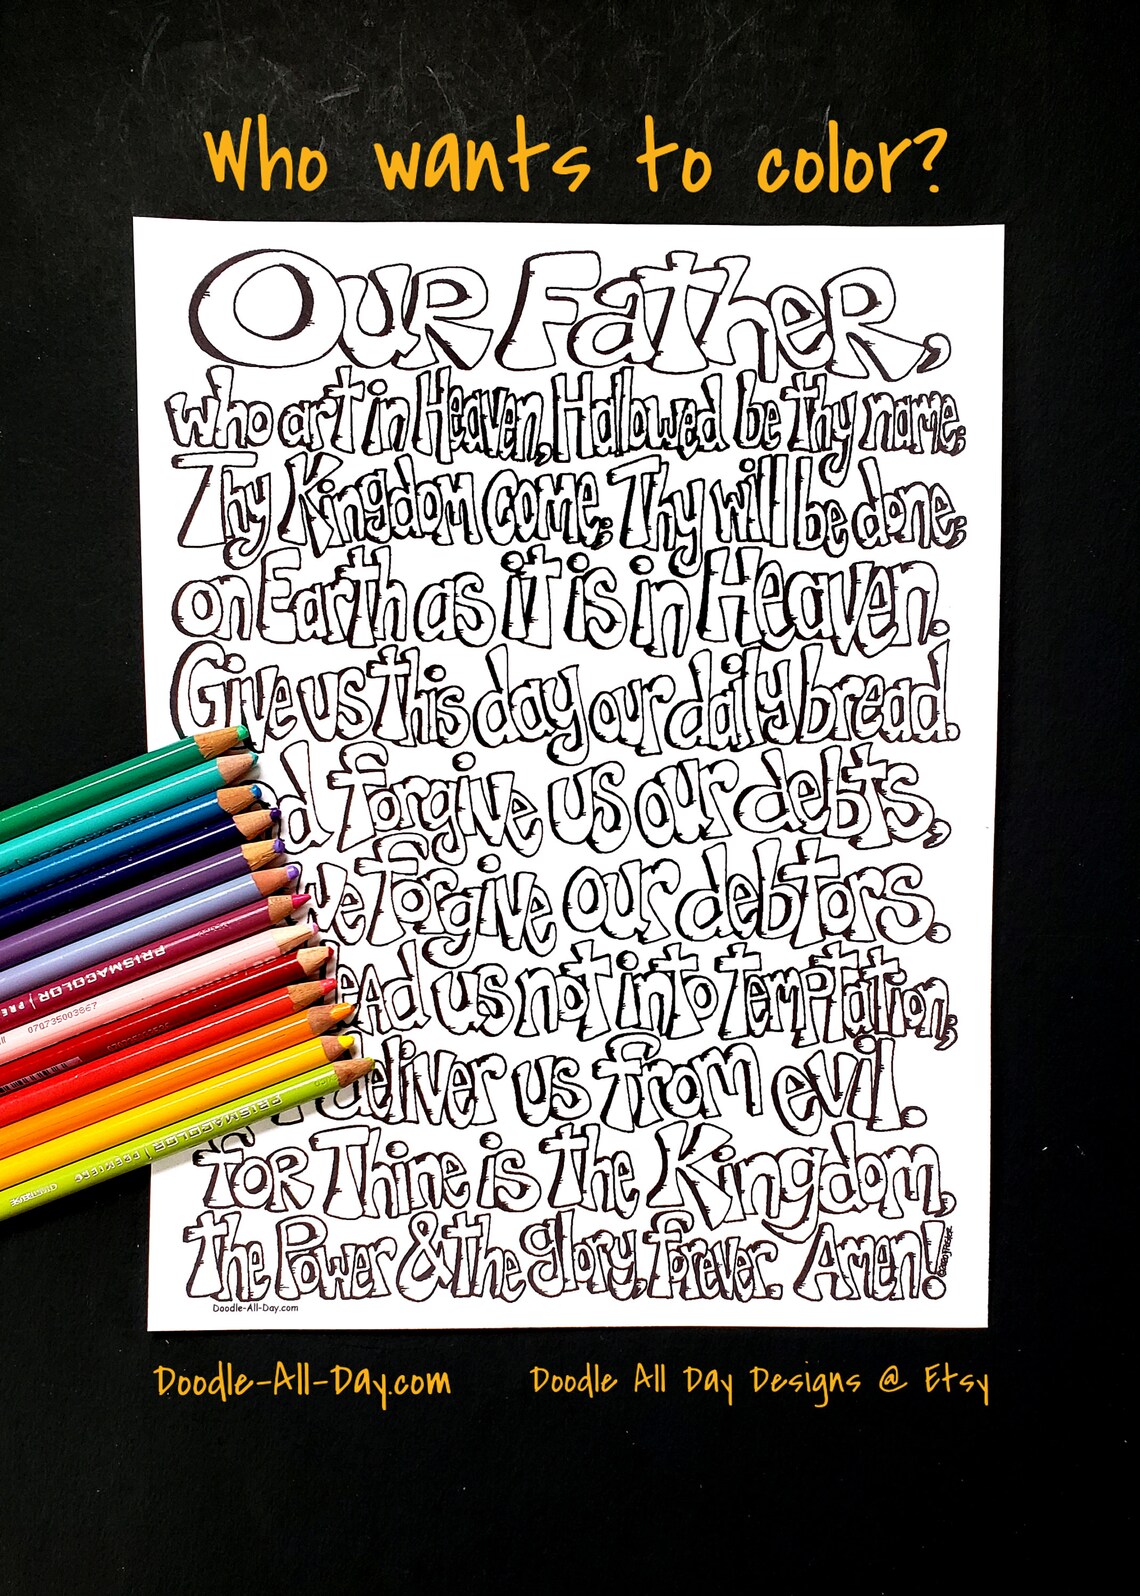 Who wants to color?
Our Father,
who art in Heaven, Hallowed be thy name;
Thy Kingdom come; Thy will be done;
on Earth as it is in Heaven.
Give us this day our daily bread.
d forgive us our debts,
we forgive our debtors.
ead us not into temptation;
deliver us from evil.
for Thine is the Kingdom,
the Power & the glory, forever. Amen!
Doodle-All-Day.com
PRISMACOLOR PRE
070735003867
PRISMACOLOR PREMIERE
Doodle-All-Day.com Doodle All Day Designs @ Etsy